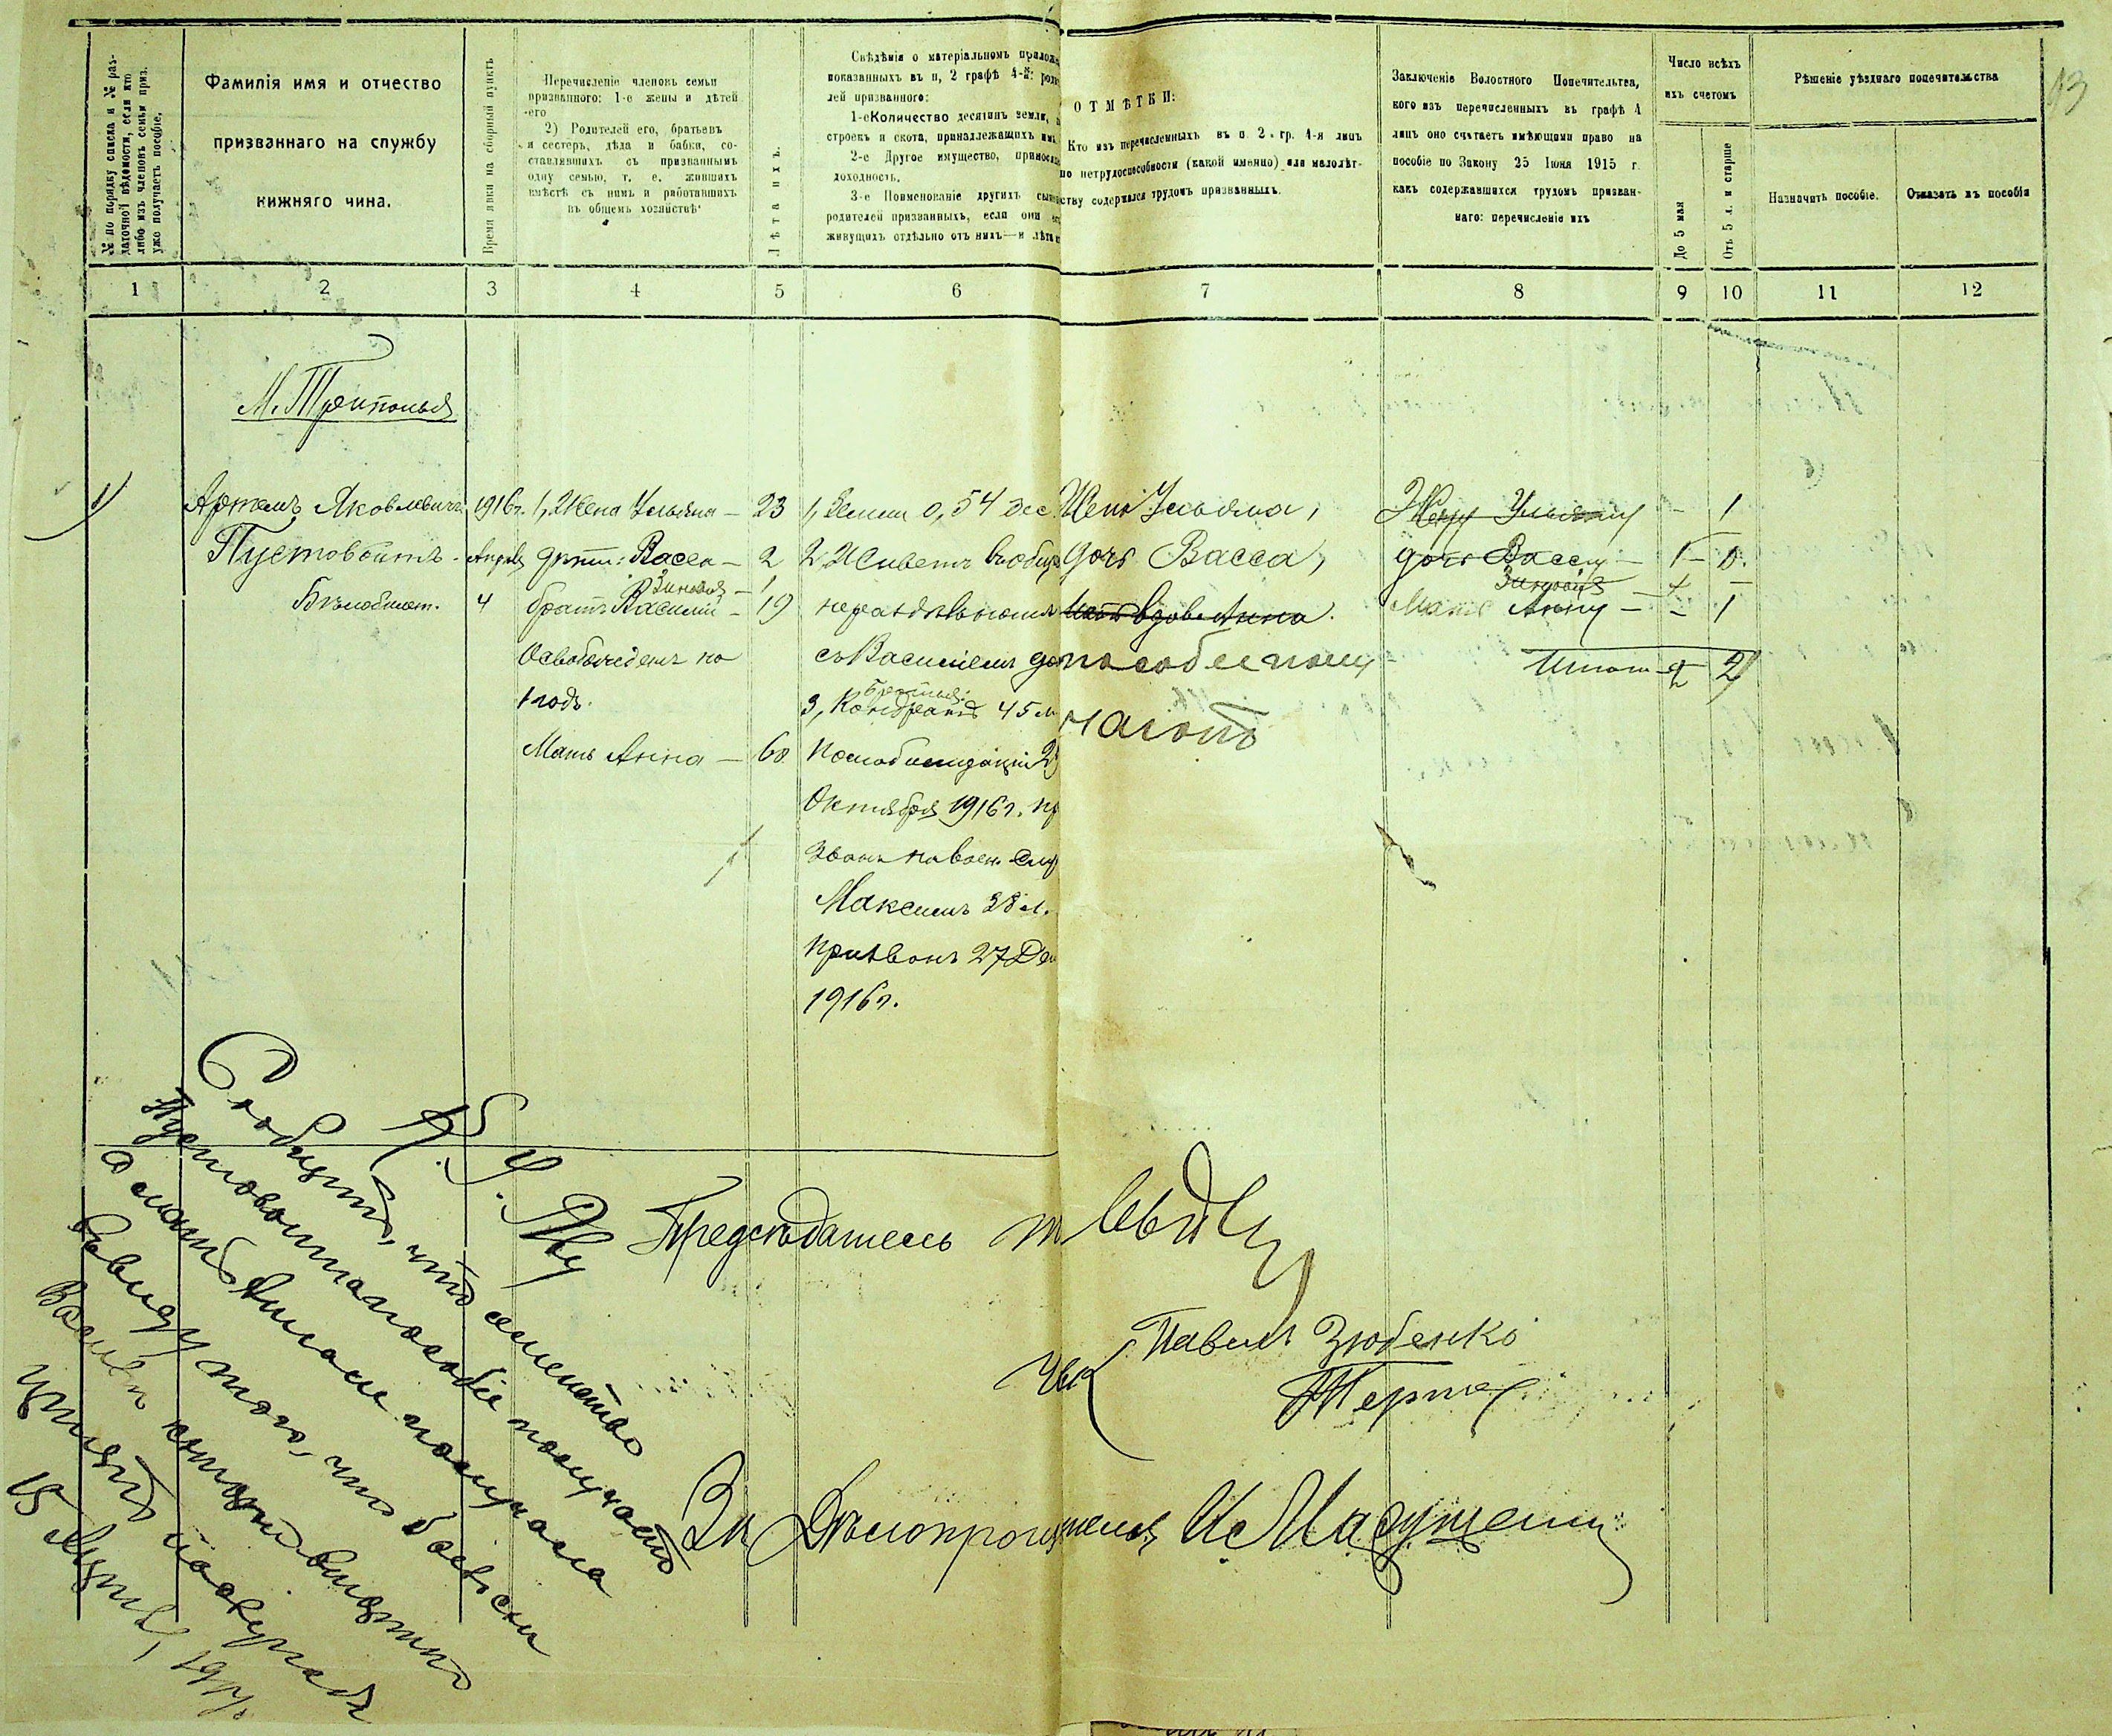 13
№ по порядку списка и № раз-
даточной вѣдомости, если кто
либо изъ членовъ семьи приз.
уже получаетъ пособіе.
Фамилія имя и отчество
призваннаго на службу
нижняго чина.
Время явки на сборный пунктъ
Перечисленіе членовъ семьи
призваннаго: 1-е жены и дѣтей
его
2) Родителей его, братьевъ
и сестеръ, дѣда и бабки, со-
ставлявшихъ съ призваннымъ
одну семью, т. е. жившихъ
вмѣстѣ съ нимъ и работавшихъ
въ общемъ хозяйствѣ
Лѣта ихъ.
Свѣдѣнія о матеріальномъ
показанныхъ въ п, 2 графѣ 4-й:
лей призваннаго:
1-е Количество десятинъ земли,
строекъ и скота, принадлежащихъ имъ
2-е Другое имущество,
доходность.
3-е Поименованіе другихъ
родителей призванныхъ, если они
живущихъ отдѣльно отъ нихъ—и лѣта
ОТМѢТКИ:
Кто изъ перечисленныхъ въ п. 2 гр. 4-я лицъ
по нетрудоспособности (какой именно) или малолѣт-
ству содержался трудомъ призванныхъ.
Заключеніе Волостного Попечительства,
кого изъ перечисленныхъ въ графѣ 4
лицъ оно считаетъ имѣющими право на
пособіе по Закону 25 Іюня 1915 г.
какъ содержавшихся трудомъ призван-
наго: перечисленіе ихъ
Число всѣхъ
ихъ счетомъ
До 5 мая
Отъ 5 л. и старше
Рѣшеніе уѣзднаго попечительства
Назначить пособіе.
Отказать въ пособіи
1 2 3 4 5 6 7 8 9 10 11 12
М. Триполья
1/
Артемъ Яковлевичъ
Пустовойтъ
Бѣлобилет.
1916г.
Апрѣля
4
1, Жена Ульяна — 23
дѣти: Васса — 2
Зиновія — 1
братъ Василій — 19
Освобожденъ на
1 годъ.
Мать Анна — 60
1, Земли 0,54 дес
2, Живетъ въ общ
нераздѣльномъ
съ Василіемъ до
братья:
3, Кондратъ 45 л
29
Октября 1916г. пр
званъ на воен. служ
Максимъ 38 л.
призванъ 27 Дек
1916г.
Жена Ульяна,
дочь Васса,
мать вдова Анна.
пособие полу
чаютъ
Жену Ульяну — 1
дочь Вассу — 1 —
Зиновія
Мать Анну — — 1
Итого 2
К. У. П.
Сообщить, что семейство
Пустовойта пособіе получаетъ
а мать Анна не получала
ввиду того, что
Василій
15 1917г.
Предсѣдатель
Павелъ Зюбенко
За Дѣлопроизводителя